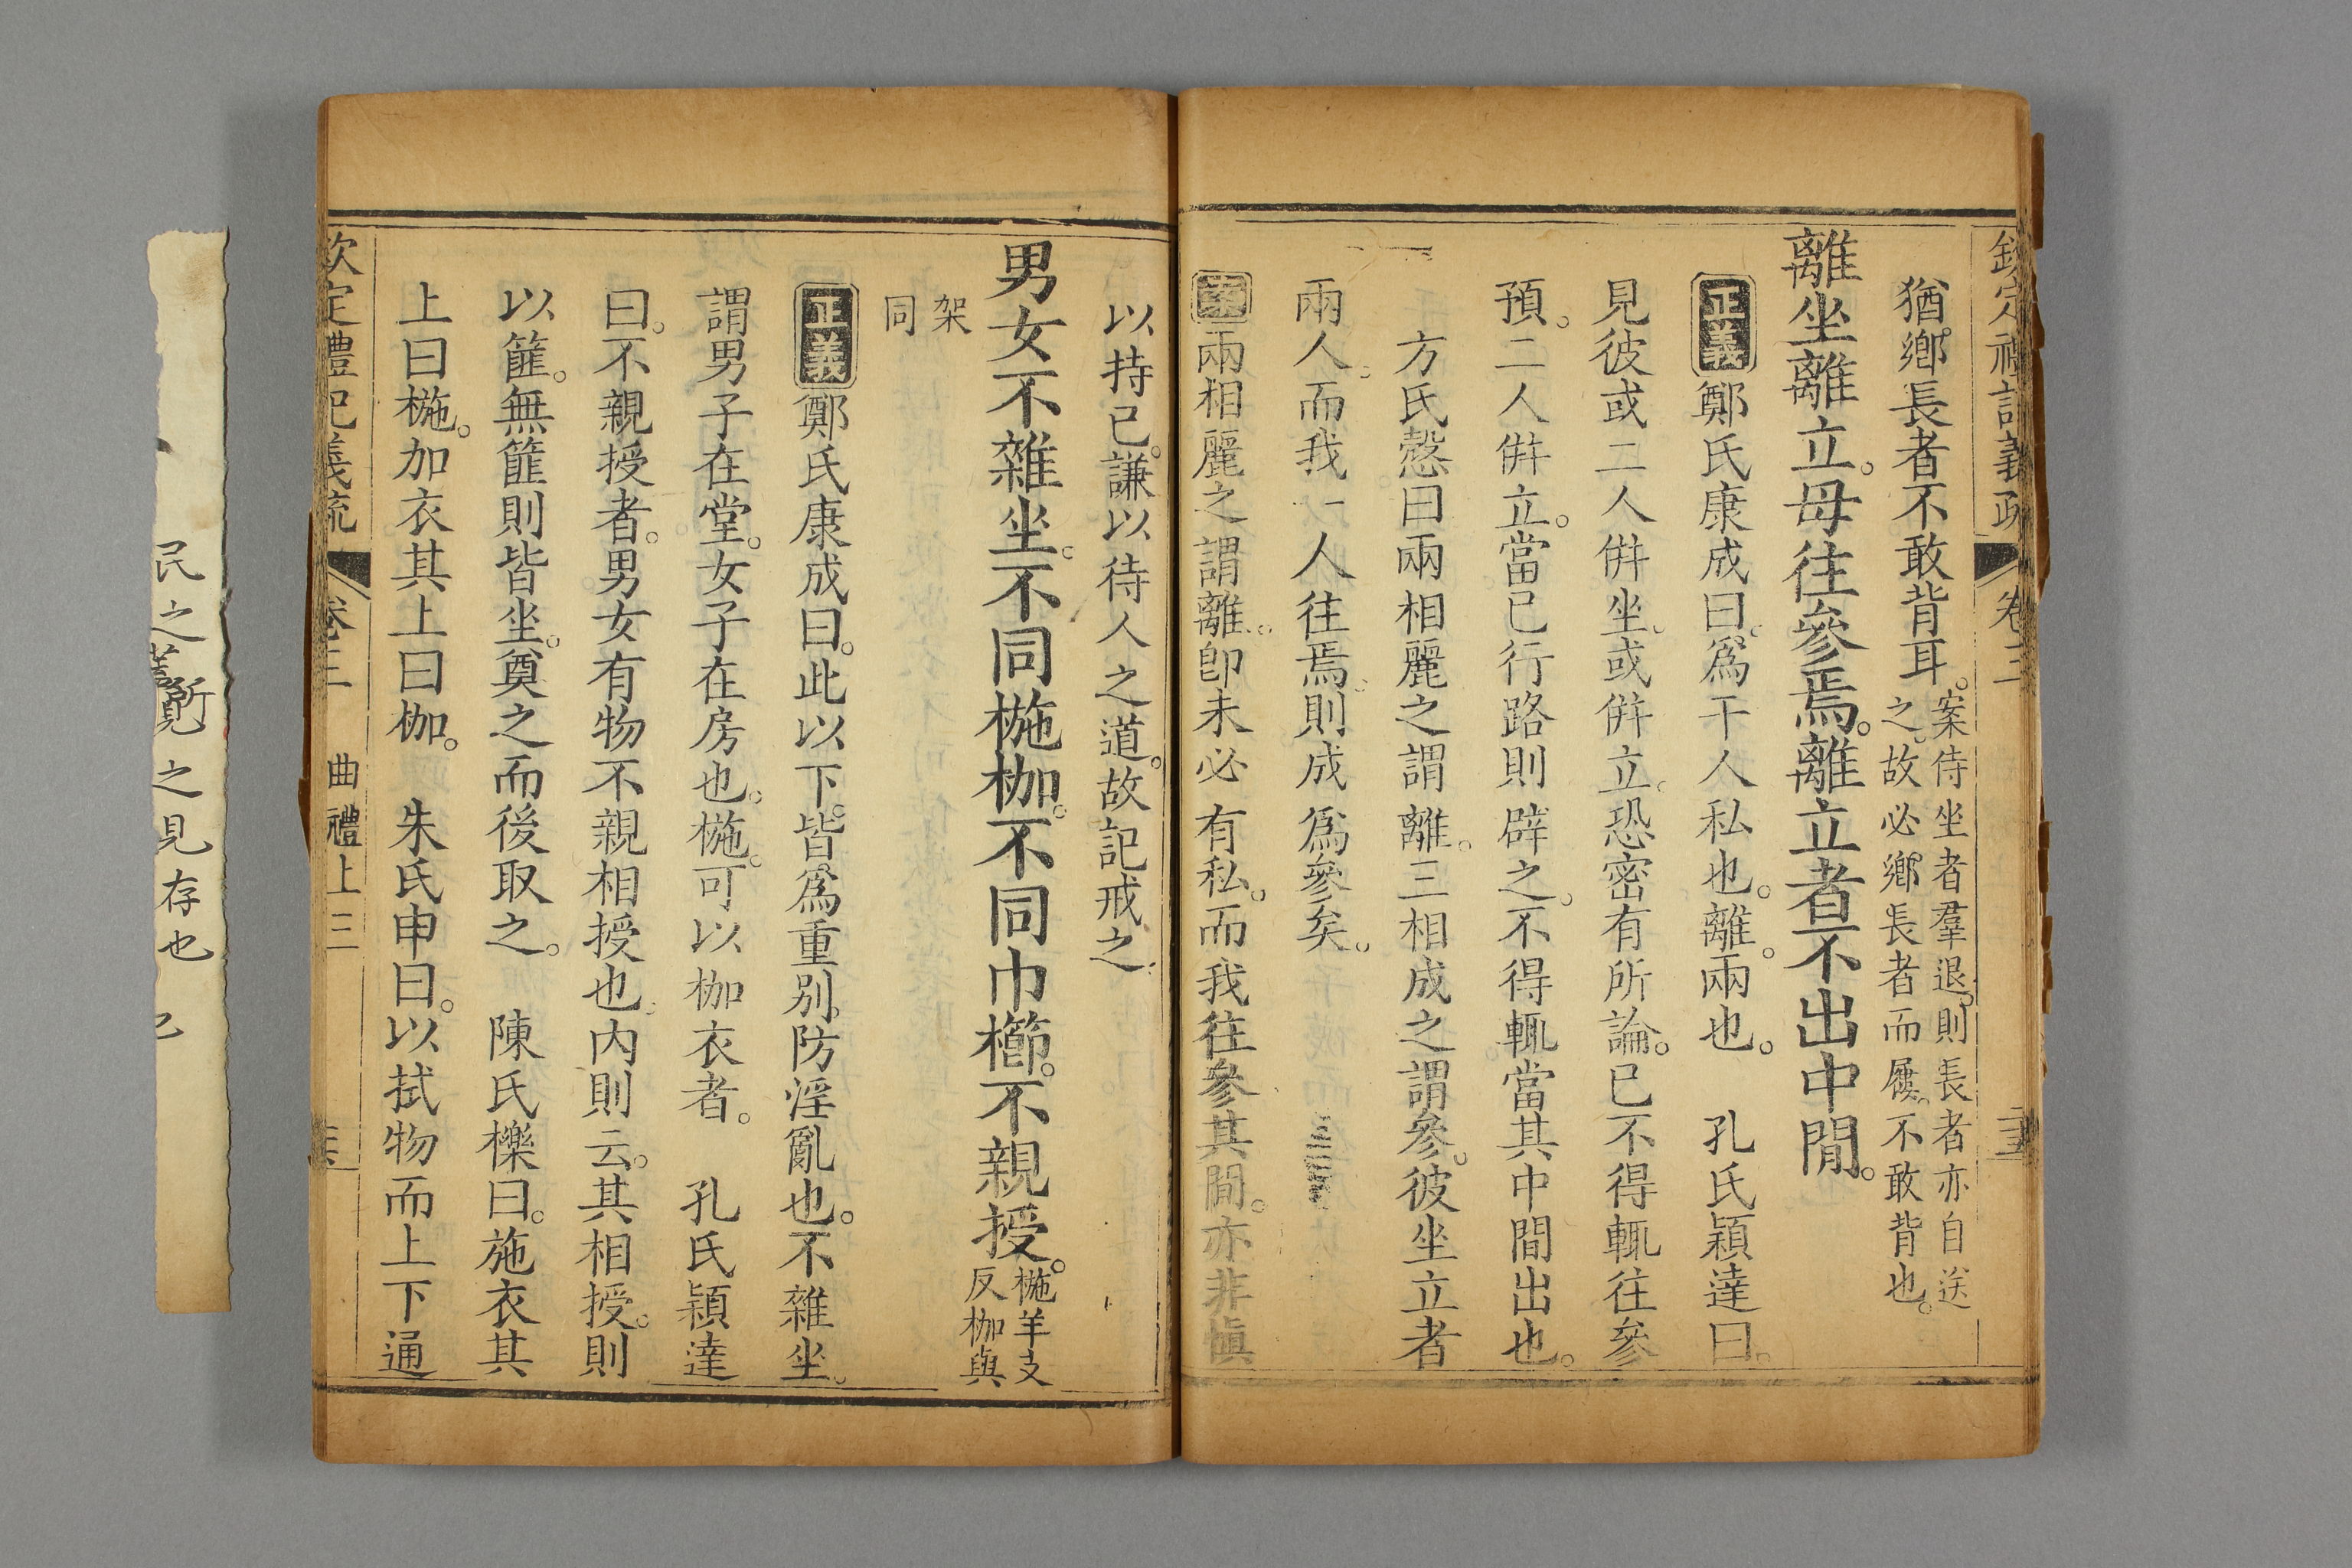 欽定禮記義疏 卷三
猶鄉長者不敢背耳。案侍坐者羣退。則長者亦自送
之。故必鄉長者而屨。不敢背也。
離坐離立。毋往參焉。離立者不出中閒。
正義 鄭氏康成曰。爲干人私也。離。兩也。 孔氏穎達曰。
見彼或二人倂坐。或倂立。恐密有所論。已不得輒往參
預。二人倂立。當已行路則辟之。不得輒當其中間出也。
方氏慤曰兩相麗之謂離。三相成之謂參。彼坐立者
兩人。而我一人往焉。則成爲參矣。
案 兩相麗之謂離。卽未必有私。而我往參其間。亦非愼
以持已。謙以待人之道。故記戒之。
男女不雜坐。不同椸枷。不同巾櫛。不親授。椸羊支
反枷與
架
同
正義 鄭氏康成曰。此以下。皆爲重別。防淫亂也。不雜坐。
謂男子在堂。女子在房也。椸。可以枷衣者。 孔氏穎達
曰。不親授者。男女有物不親相授也。内則云。其相授。則
以篚。無篚則皆坐。奠之而後取之。 陳氏櫟曰。施衣其
上曰椸。加衣其上曰枷。 朱氏申曰。以拭物而上下通
欽定禮記義疏 卷三 曲禮上三
民之
所
之見存也